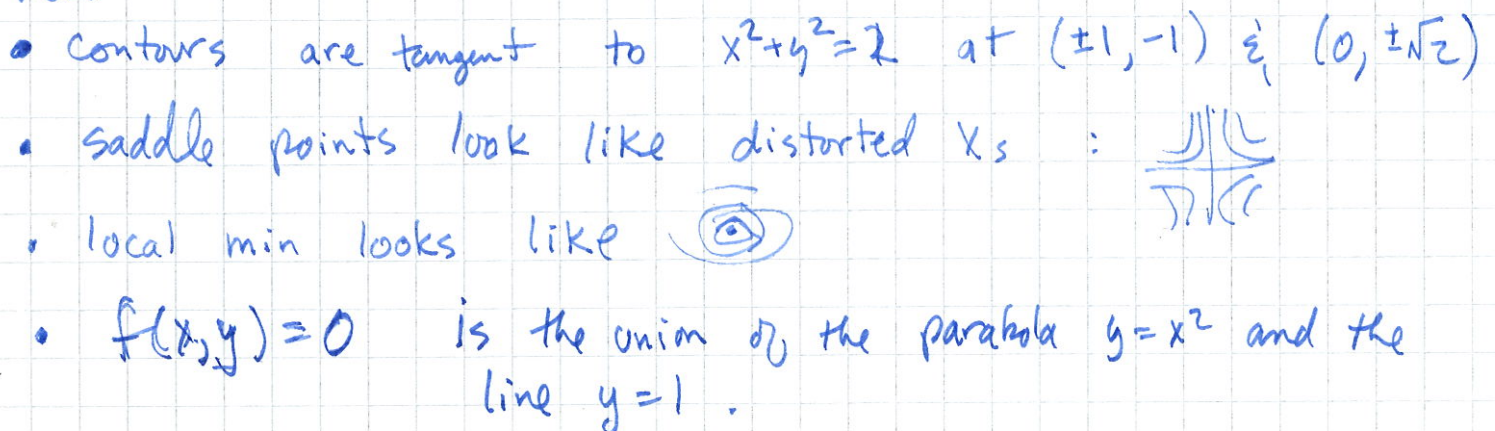 • contours are tangent to x²+y²=2 at (±1,-1) & (0, ±√2)
• saddle points look like distorted Xs :
• local min looks like
• f(x,y)=0 is the union of the parabola y=x² and the
line y=1.